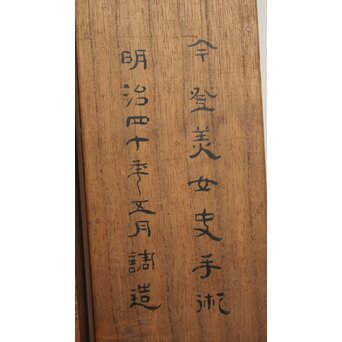 今登美女史手術
明治四十秊五月請造